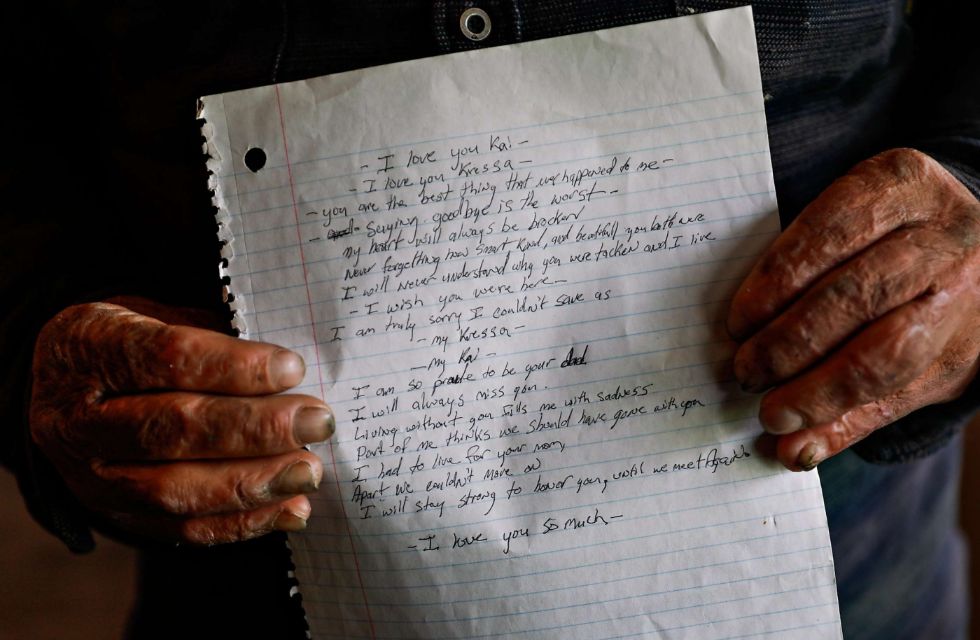 - I love you Kai -
- I love you Kressa -
- you are the best thing that ever happened to me -
- Saying goodbye is the worst -
my heart will always be brocken
Never forgetting how smart kind, and beautiful you both were
I will never understand why you were tacken and I live
- I wish you were here -
I am truly sorry I couldn't save as
- my Kressa -
- my Kai -
I am so proude to be your dad
I will always miss you.
Living without you fills me with sadness
Part of me thinks we should have gone with you
I had to live for your mom,
Apart we couldn't move on
I will stay strong to honor you, until we meet Again
- I love you so much -